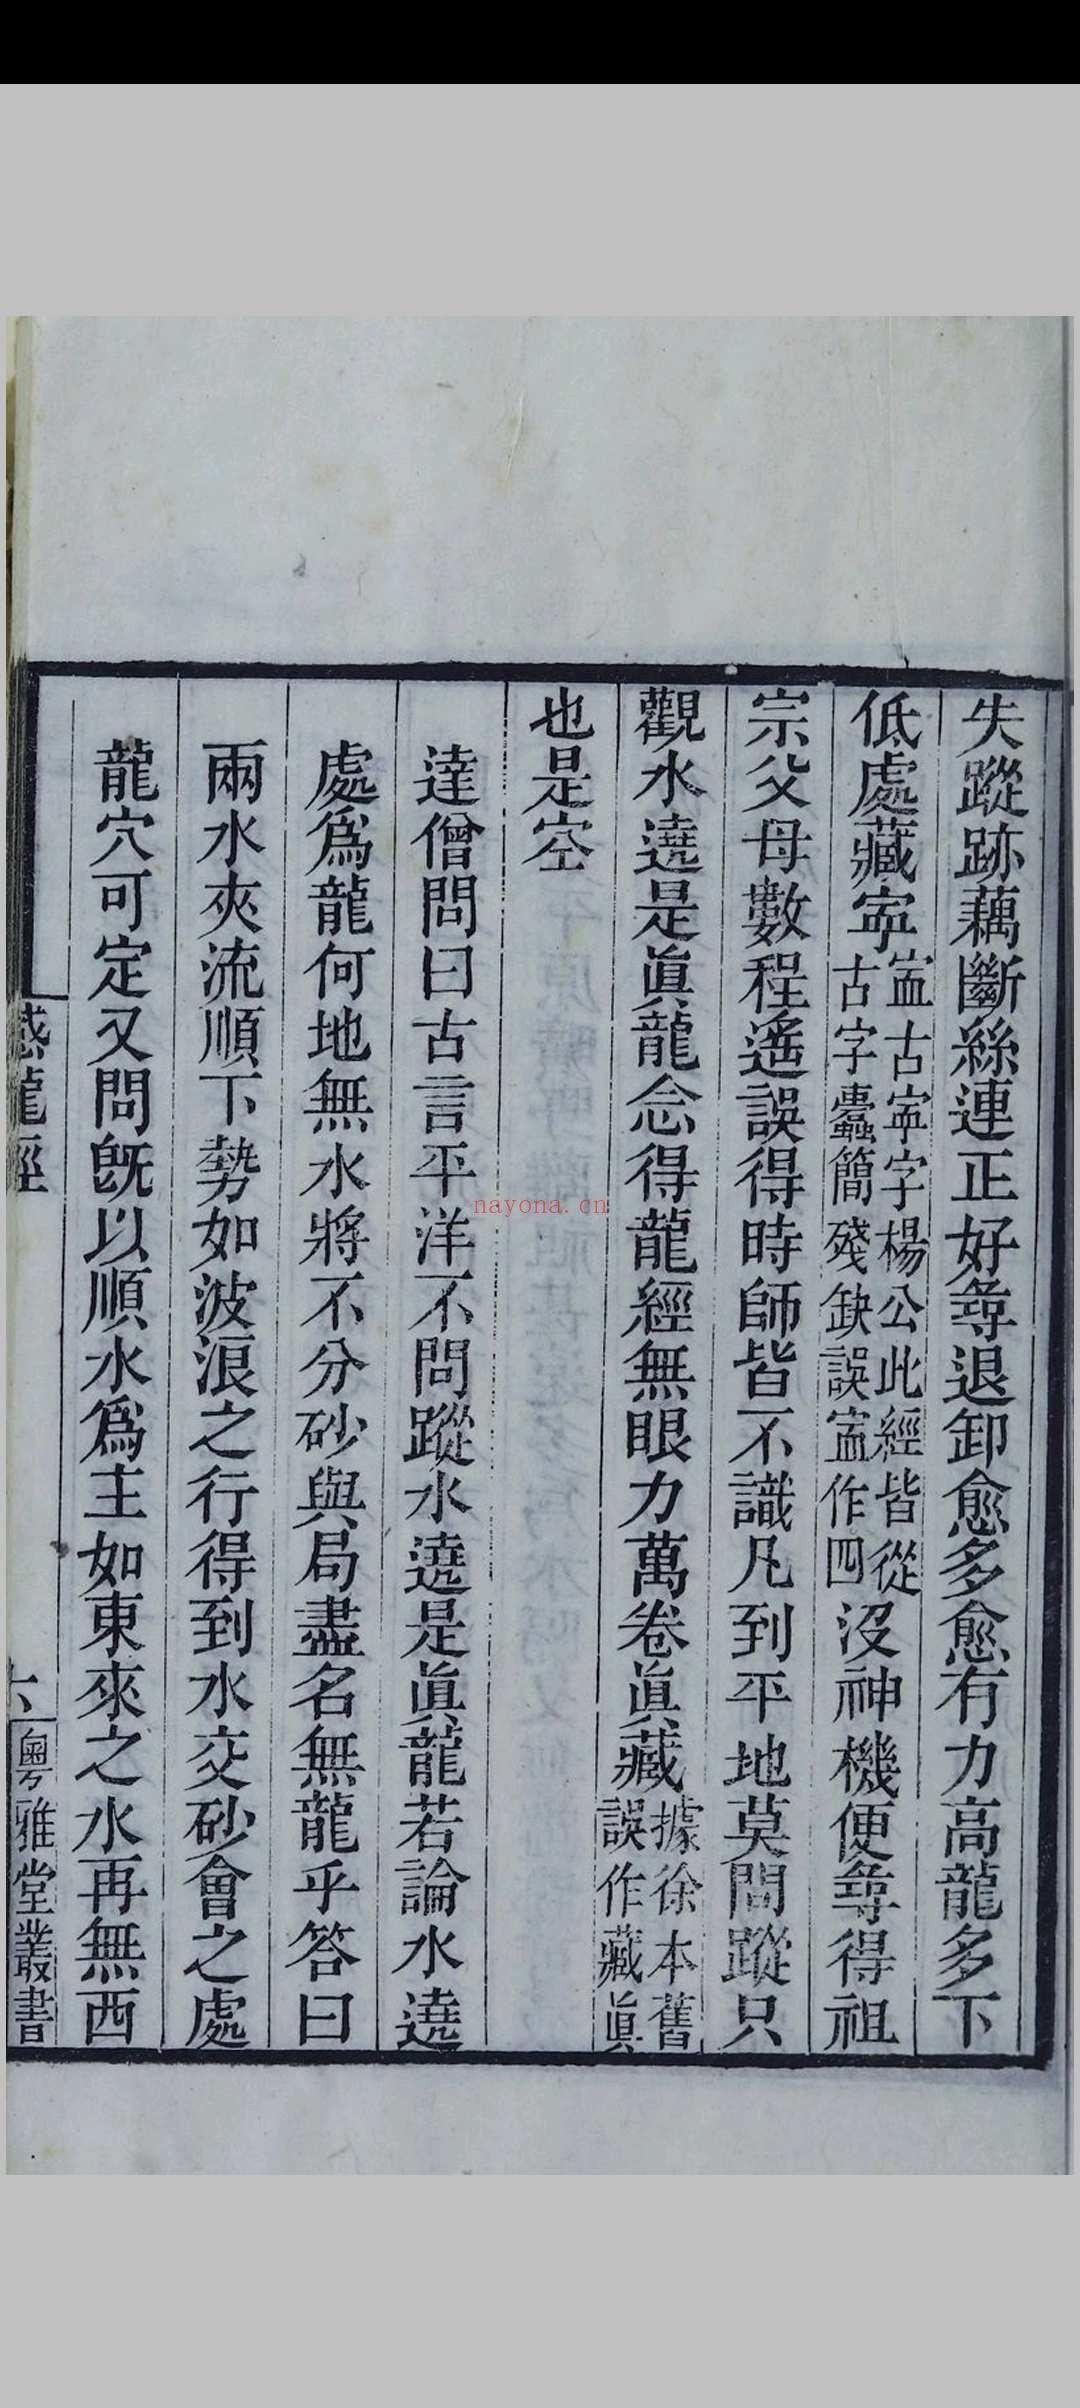 失蹤跡藕斷絲連正好尋退卸愈多愈有力高龍多下
低處藏寍寍古寍字楊公此經皆從古字蠹簡殘缺誤寍作四沒神機便尋得祖
宗父母數程遙誤得時師皆不識凡到平地莫問蹤只
觀水遶是眞龍念得龍經無眼力萬卷眞藏據徐本舊誤作藏眞
也是空
達僧問曰古言平洋不問蹤水遶是眞龍若論水遶
處爲龍何地無水將不分砂與局盡名無龍乎答曰
兩水夾流順下勢如波浪之行得到水交砂會之處
龍穴可定又問旣以順水爲主如東來之水再無西
撼龍經
六
粵雅堂叢書
nayona.cn